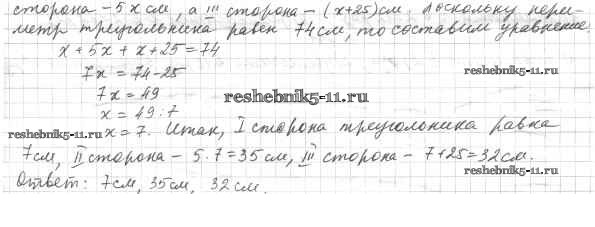 сторона - 5x см, а III сторона - (x+25) см. Поскольку пери-
метр треугольника равен 74 см, то составим уравнение:
x + 5x + x + 25 = 74
7x = 74-25
reshebnik5-11.ru
7x = 49
reshebnik5-11.ru
x = 49 : 7
reshebnik5-11.ru
x = 7. Итак, I сторона треугольника равна
7 см, II сторона - 5·7=35 см, III сторона - 7+25=32 см.
Ответ: 7 см, 35 см, 32 см.